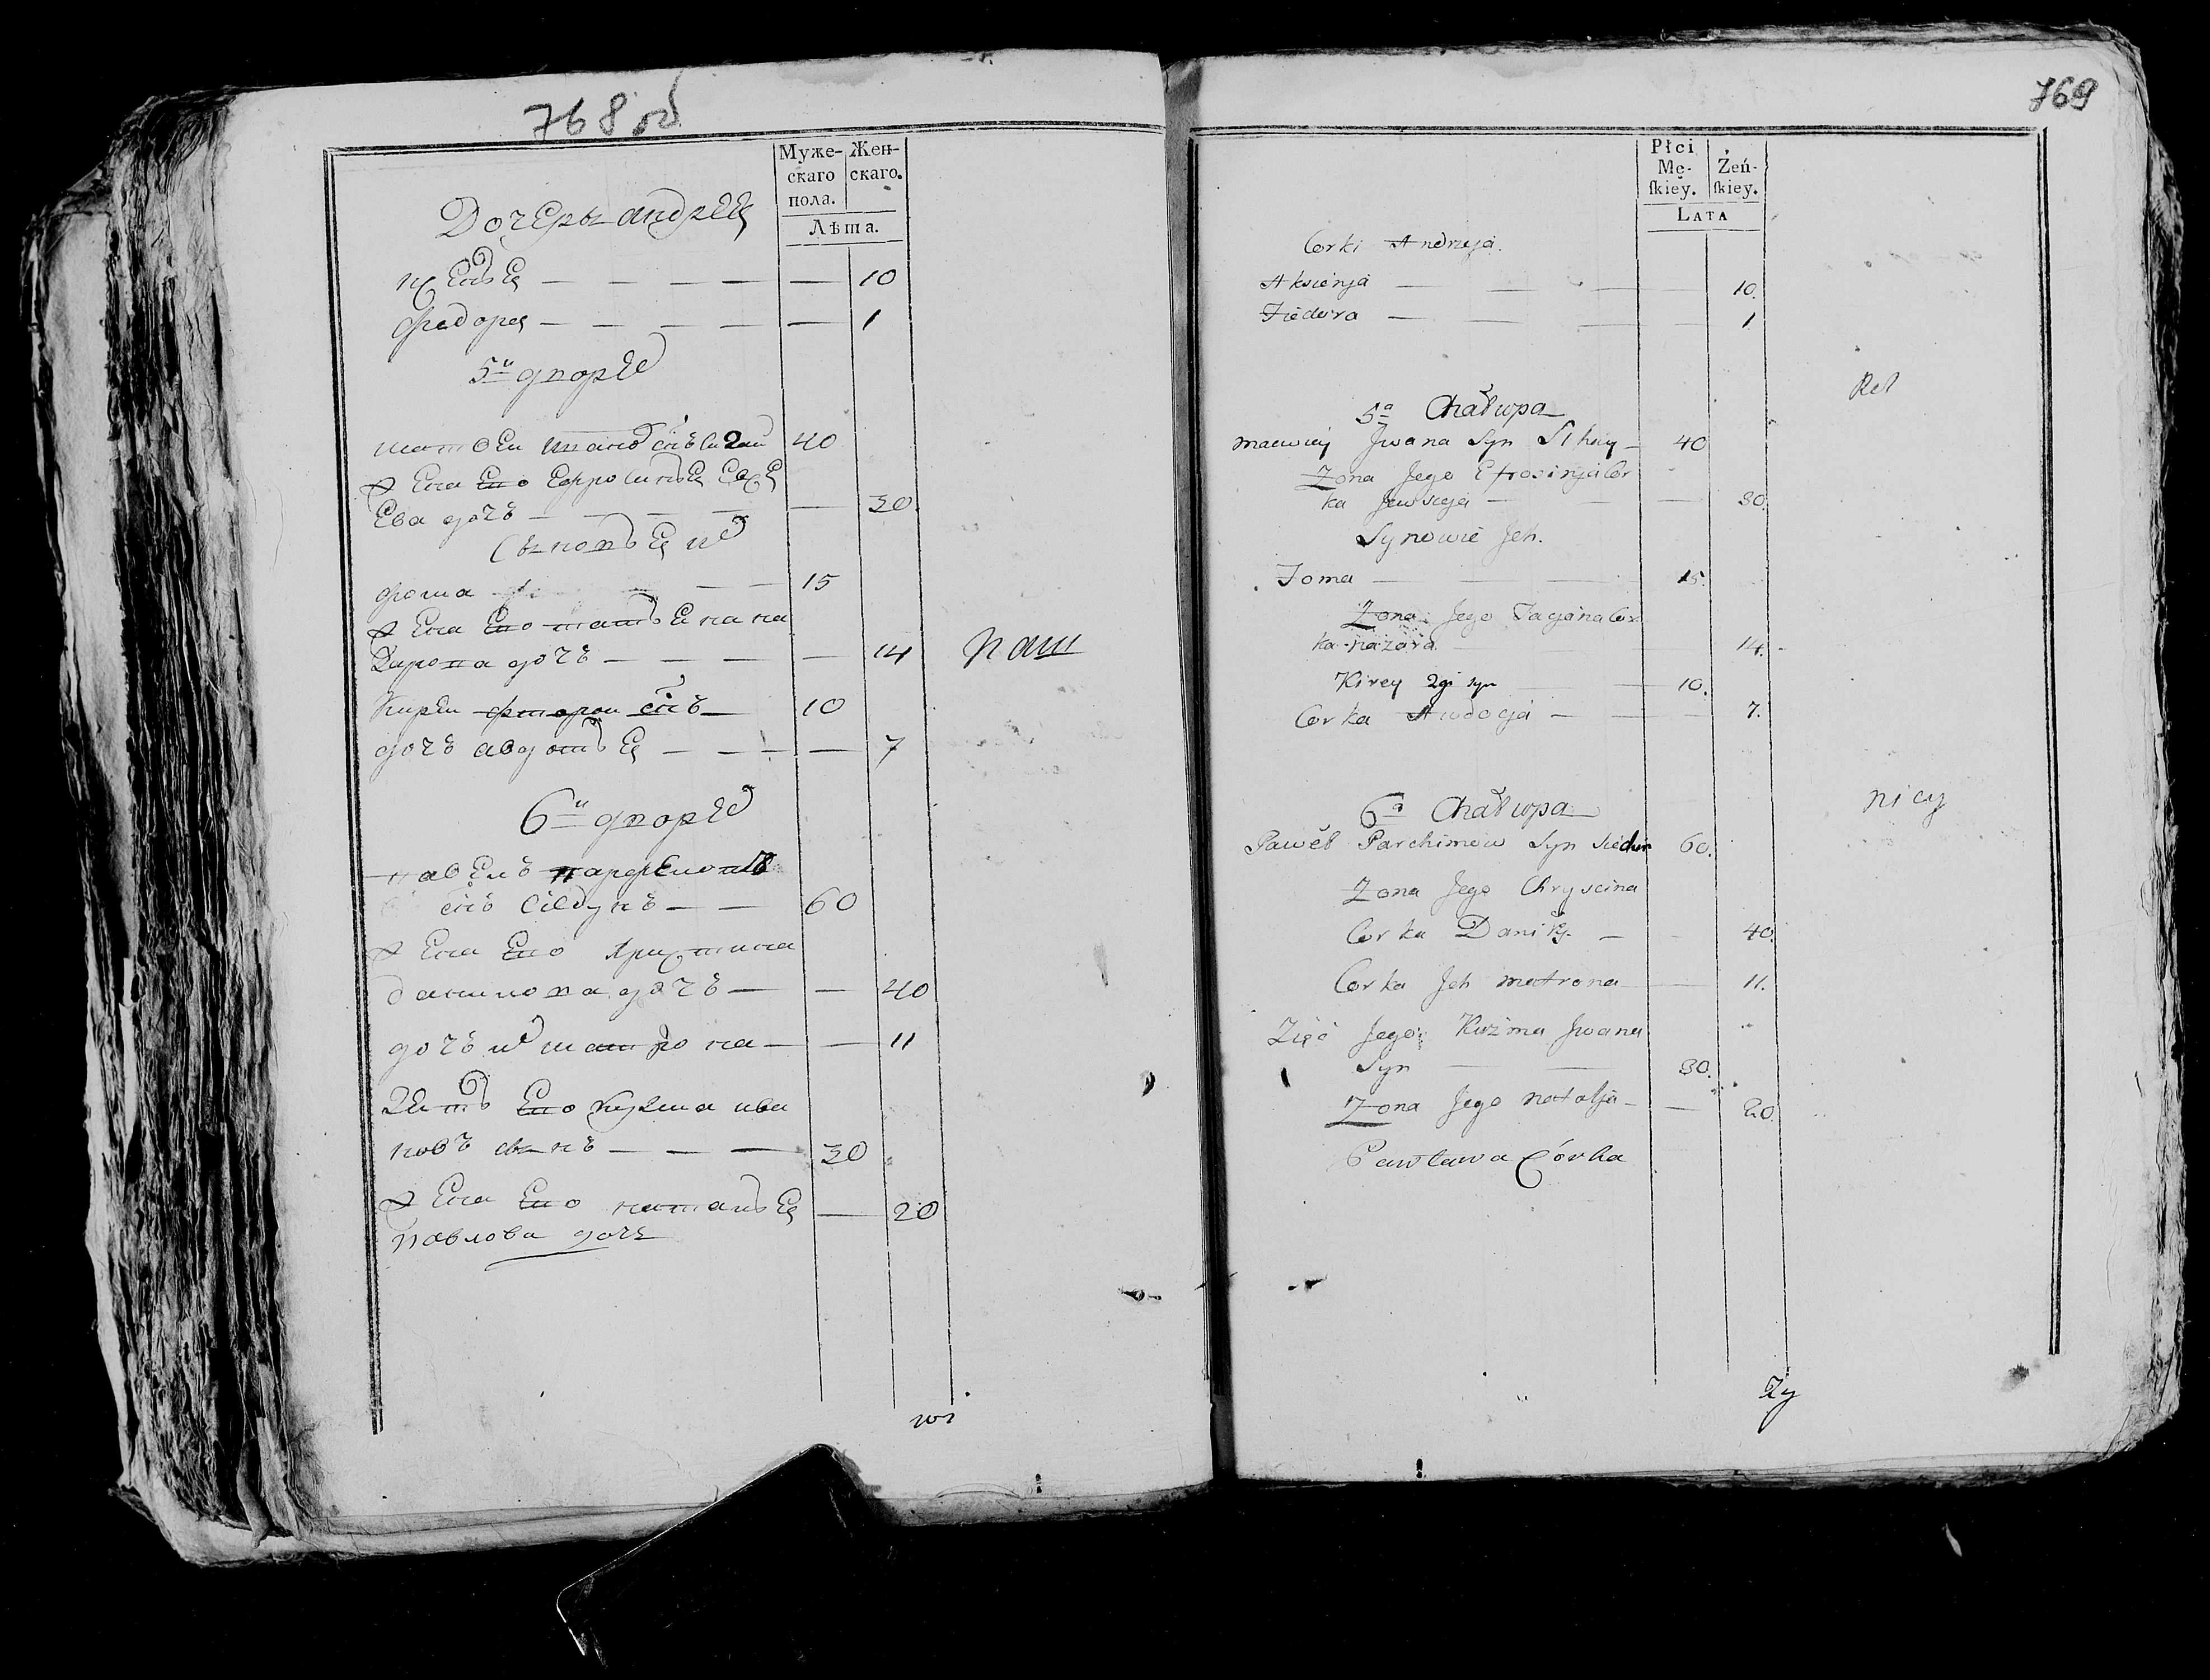 768 об
Муже-
скаго
пола.
Жен-
скаго.
Лѣта.
Дочеры андрея
10
федорея — — — — — 1
5й дворъ
матвеи иванов снъ 40
жена ево ефросинья
ева дочъ — — — — — 30
Сыновья их
фома — — 15
жена ево татьеяна на
зарова дочъ — — — — 14
кирѣи фторои снъ — 10
дочъ авдотья — — — — 7
наш
6й дворъ
павелъ парфеновъ
снъ Сѣдунъ — — 60
жена ево христина
данилова дочъ — — 40
дочъ их матрона — — 11
зять ево кузма ива
новъ сынъ — — — 30
жена ево наталья — 20
павлова дочь
769
Płci
Mę-
ſkiey.
Żeń-
ſkiey.
LATA
Corki Andrzeja.
Aksienja — — — — — 10.
Fiedora — — — — — 1
Rel
5a Chałupa
Maciey Jwana Syn 40
Zona Jego Efrosinja Cor
ka Jewsieja — — 30.
Synowie Jch.
Foma — — — 15.
Zona Jego Tacjana Cor
ka nazara — — 14.
Kirey 2gi syn — — 10.
Corka Awdocja — — — 7.
nicy
6a Chałupa
Paweł Parchimow Syn Siedun 60.
Zona Jego Chryscina
Corka Daniły. — — 40.
Corka Jch matrona — 11.
Zięć Jego Kuźma Jwana
Syn — — 30.
Zona Jego natalja — — 20.
Pawława Córka
Zy